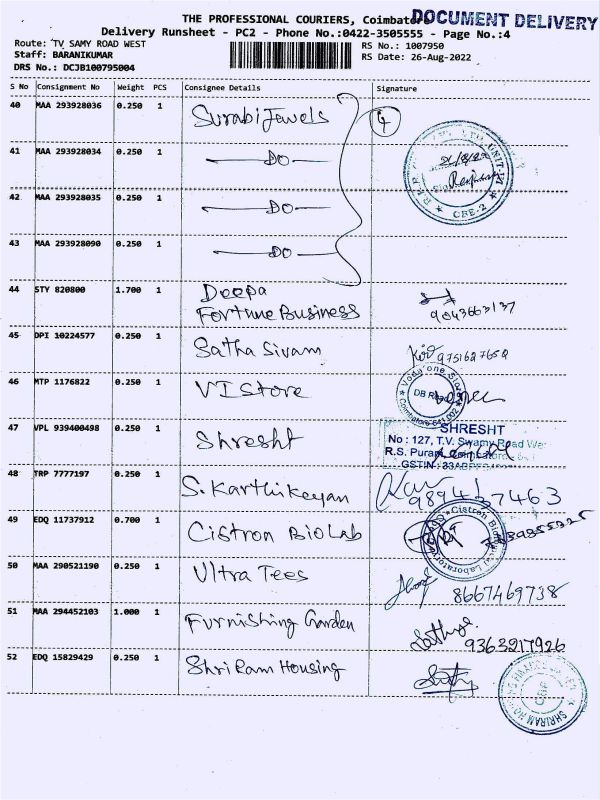 THE PROFESSIONAL COURIERS, Coimbatore
DOCUMENT DELIVERY
Delivery Runsheet - PC2 - Phone No.:0422-3505555 - Page No.:4
Route: TV SAMY ROAD WEST
Staff: BARANIKUMAR
DRS No.: DCJB100795004
RS No.: 1007950
RS Date: 26-Aug-2022
S No Consignment No Weight PCS Consignee Details Signature
40 MAA 293928036 0.250 1 Surabi Jewels 4
41 MAA 293928034 0.250 1 DO
UNIT-VI
CBE-2
42 MAA 293928035 0.250 1 DO
43 MAA 293928090 0.250 1 DO
44 STY 820800 1.700 1 Deepa
Fortune Business 9043663137
45 DPI 10224577 0.250 1 Satha Sivam 9751627652
46 MTP 1176822 0.250 1 VI Store
DB Road
47 VPL 939400498 0.250 1 Shresht
SHRESHT
No : 127, T.V. Swamy Road
R.S. Puram,
GSTIN : 33
48 TRP 7777197 0.250 1 S. Karthikeyan
49 EDQ 11737912 0.700 1 Cistron BioLab
Cistron
50 MAA 290521190 0.250 1 Ultra Tees 8667469738
51 MAA 294452103 1.000 1 Furnishing Garden
9363217926
52 EDQ 15829429 0.250 1 Shri Ram Housing
SHRIRAM